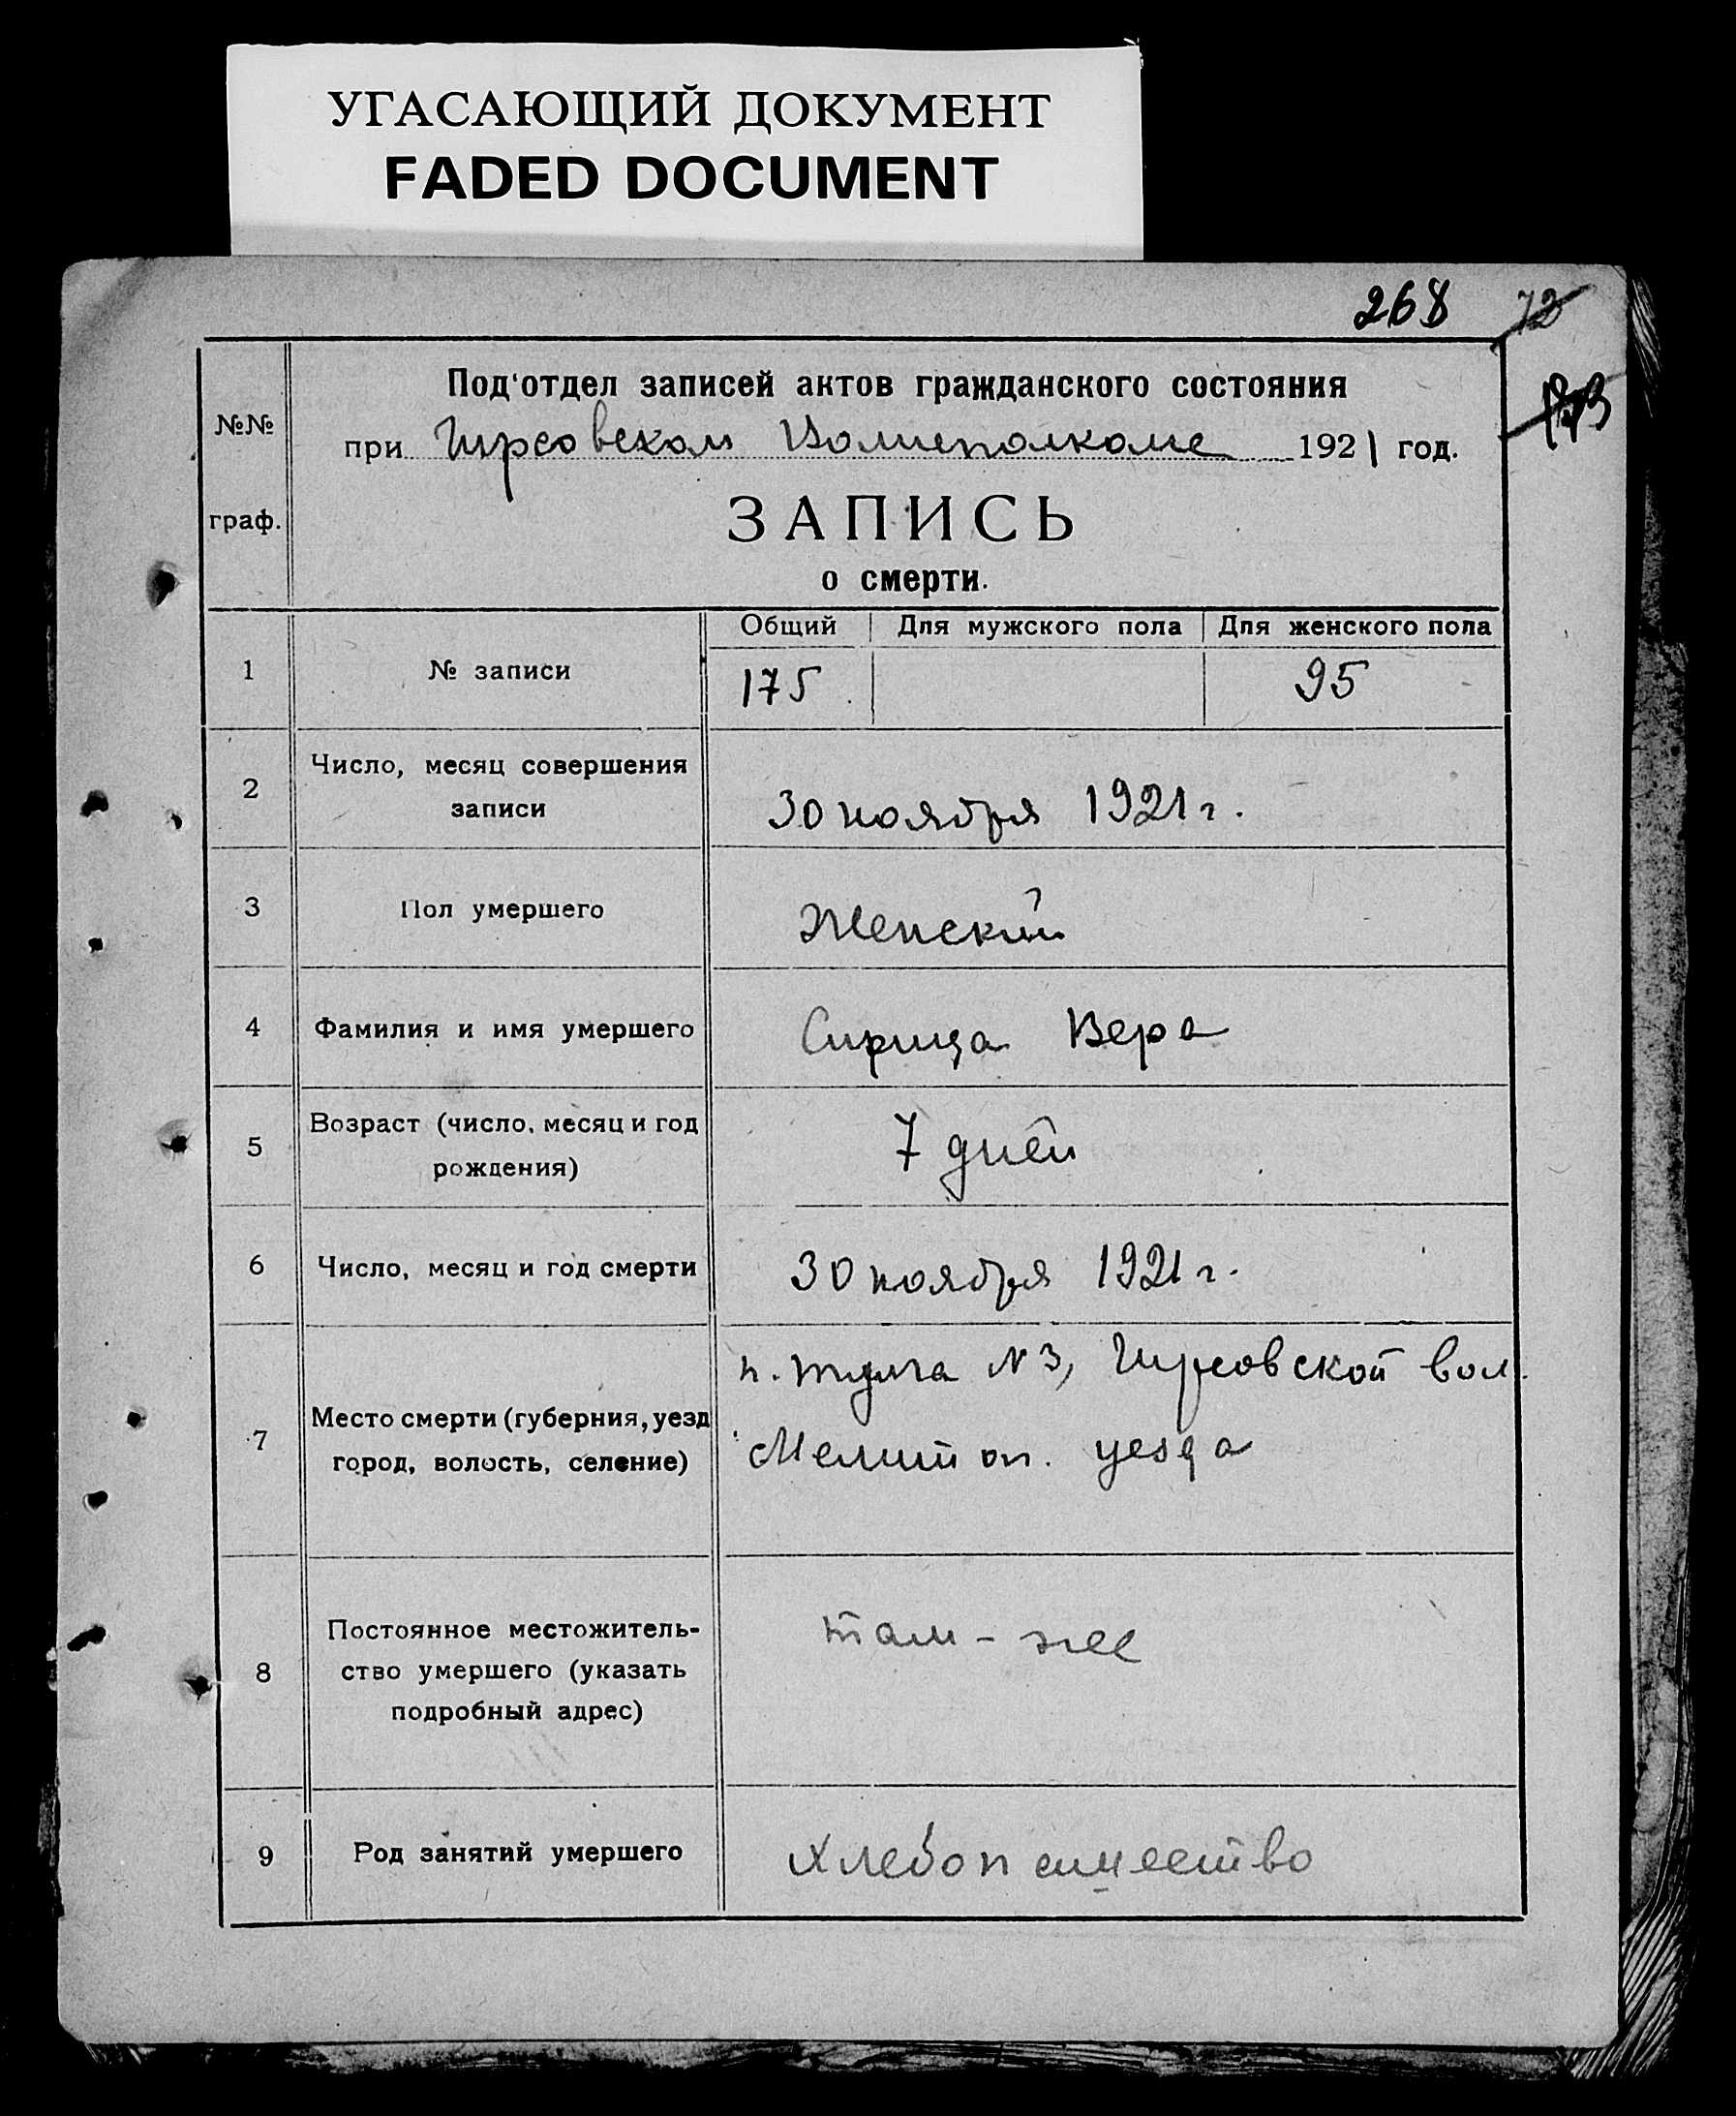 УГАСАЮЩИЙ ДОКУМЕНТ
FADED DOCUMENT
268 72
173
Под'отдел записей актов гражданского состояния
№№
при Гирсовском Волисполкоме 1921 год.
граф.
ЗАПИСЬ
о смерти.
Общий Для мужского пола Для женского пола
1 № записи 175 95
2 Число, месяц совершения
записи 30 ноября 1921 г.
3 Пол умершего Женский
4 Фамилия и имя умершего Сирица Вера
5 Возраст (число, месяц и год
рождения) 7 дней
6 Число, месяц и год смерти 30 ноября 1921 г.
7 Место смерти (губерния, уезд
город, волость, селение)
N 3, Гирсовской вол.
Мелитоп. уезда
8 Постоянное местожитель-
ство умершего (указать
подробный адрес)
там-же
9 Род занятий умершего Хлебопашество